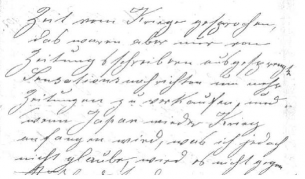 Zeit vom Kriege gesprochen,
das waren aber nur von
Zeitungsschreibern ausgesprengte
Sensationsnachrichten um mehr
Zeitungen zu verkaufen, und
wenn Japan wieder Krieg
anfangen wird, was ich jedoch
nicht glaube, wird es nicht gegen